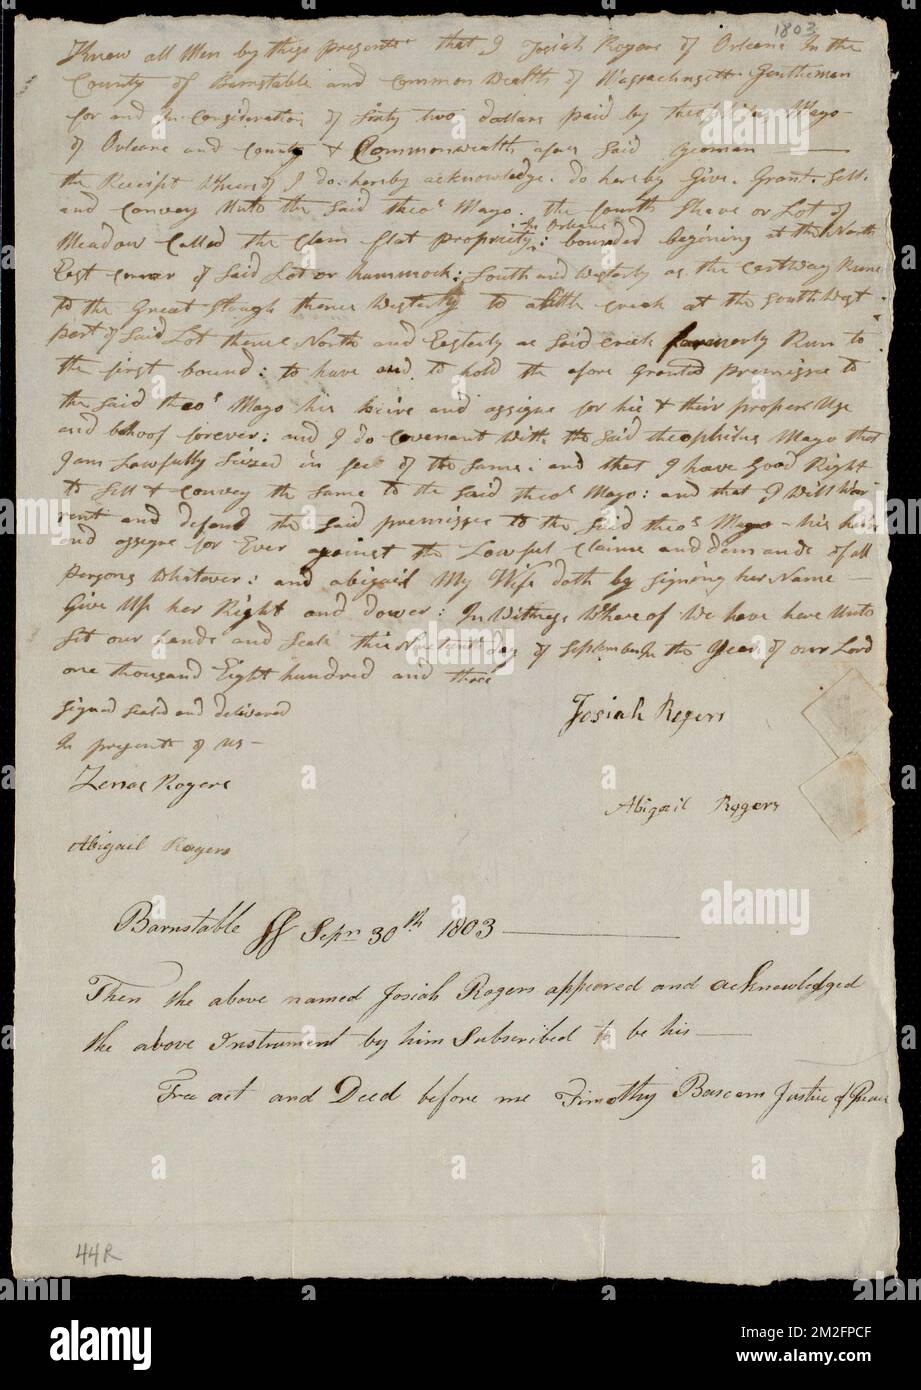 1803
Know all Men by thes presents that I Josiah Rogers of Orleans In the
County of Barnstable and Common Wealth of Massachusetts Gentleman
for and In Consideration of Sixty two dollars paid by Theophilus Mayo
of Orleans and County & Commonwealth afore Said Yeoman
the Receipt Whereof I do hereby acknowledge do hereby Give. Grant. Sell.
and Convey Unto the Said Theos Mayo. the fourth Share or Lot of
In Orleans
Meadow Called the Clam flat propriety: bounded begining at the North
East Corner of Said Lot or hummock: South and Westerly as the Cartway Runs
to the Great Slough thence Westerly to a little creek at the Southwest
part of Said Lot thence North and Easterly as Said creek formerly Run to
the first bound: to have and to hold the afore Granted premisses to
the Said Theos Mayo his heirs and assigns for his & their proper Use
and behoof forever: and I do Covenant with the Said Theophilus Mayo that
I am Lawfully Seized in fee of the Same: and that I have Good Right
to Sell & Convey the Same to the Said Theos Mayo: and that I Will War
rent and defend the Said premisses to the Said Theos Mayo - his heirs
and assigns for Ever against the Lawful Claims and demands of all
persons Whatever: and abigail My Wife doth by Signing her Name
Give Up her Right and dower: In Witness Whereof We have here Unto
Set our hands and Seals this day of September In the Year of our Lord
one thousand Eight hundred and three
Signed Seald and delivered
In presents of us -
Josiah Rogers
Zenas Rogers
Abigail Rogers
Abigail Rogers
Barnstable SS Sepr 30th 1803
Then the above named Josiah Rogers appeared and acknowledged
the above Instrument by him Subscribed to be his
Free act and Deed before me Timothy Bascom Justice of Peace
44R
alamy
Image ID: 2M2FPCF
www.alamy.com